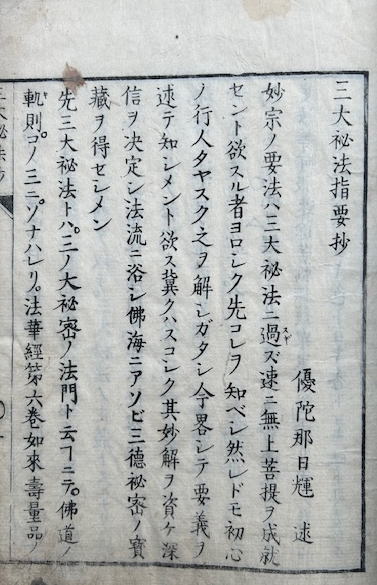 三大祕法指要抄
優陀那日輝 述
妙宗ノ要法ハ三大祕法ニ過ズ速ニ無上菩提ヲ成就
スギ
セント欲スル者ヨロシク先コレヲ知ベシ然レドモ初心
ノ行人タヤスク之ヲ解シガタシ今畧シテ要義ヲ
述テ知シメント欲ス冀クハスコシク其妙解ヲ資ケ深
信ヲ決定シ法流ニ浴シ佛海ニアソビ三德祕密ノ寶
藏ヲ得セシメン
先三大祕法トハ。三ノ大祕密ノ法門ト云ヿニテ。佛道ノ
軌則。コノ三ニ。ソナハレリ。法華經第六卷如來壽量品ノ
三大祕法抄